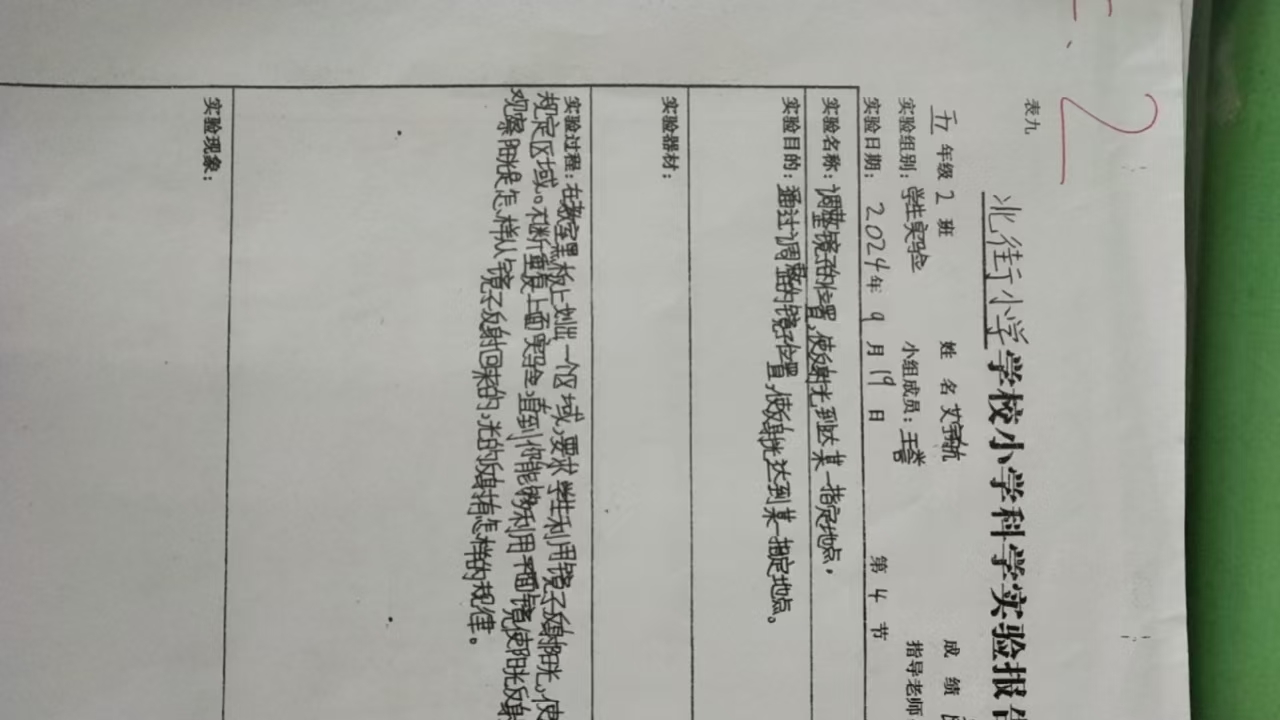 2
表九
北街小学学校小学科学实验报告
五年级 2 班 姓名 艾宇航 成绩
实验组别：学生实验 小组成员：王誉 指导老师
实验日期：2024年 9月 19日 第 4 节
实验名称：调整镜子的位置，使反射光到达某一指定地点。
实验目的：通过调整的镜子位置，使反射光达到某一指定地点。
实验器材：
实验过程：在教室黑板上划出一个区域，要求学生利用镜子反射阳光，使
规定区域。不断重复上面实验，直到你能够利用平面镜使阳光反射
观察阳光是怎样从镜子反射回来的，光的反射有怎样的规律。
实验现象：